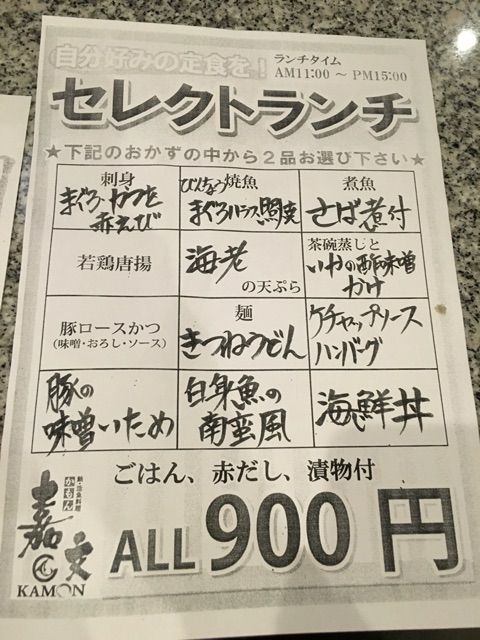 自分好みの定食を!
ランチタイム
AM11:00 ～ PM15:00
セレクトランチ
★下記のおかずの中から2品お選び下さい★
刺身
まぐろ・かつを
赤えび
びんちょう焼魚
まぐろハラス照焼
煮魚
さば煮付
若鶏唐揚
海老
の天ぷら
茶碗蒸しと
いかの酢味噌
かけ
豚ロースかつ
(味噌・おろし・ソース)
麺
きつねうどん
ケチャップソース
ハンバーグ
豚の
味噌いため
白身魚の
南蛮風
海鮮丼
ごはん、赤だし、漬物付
かもん
嘉文
KAMON
ALL 900 円